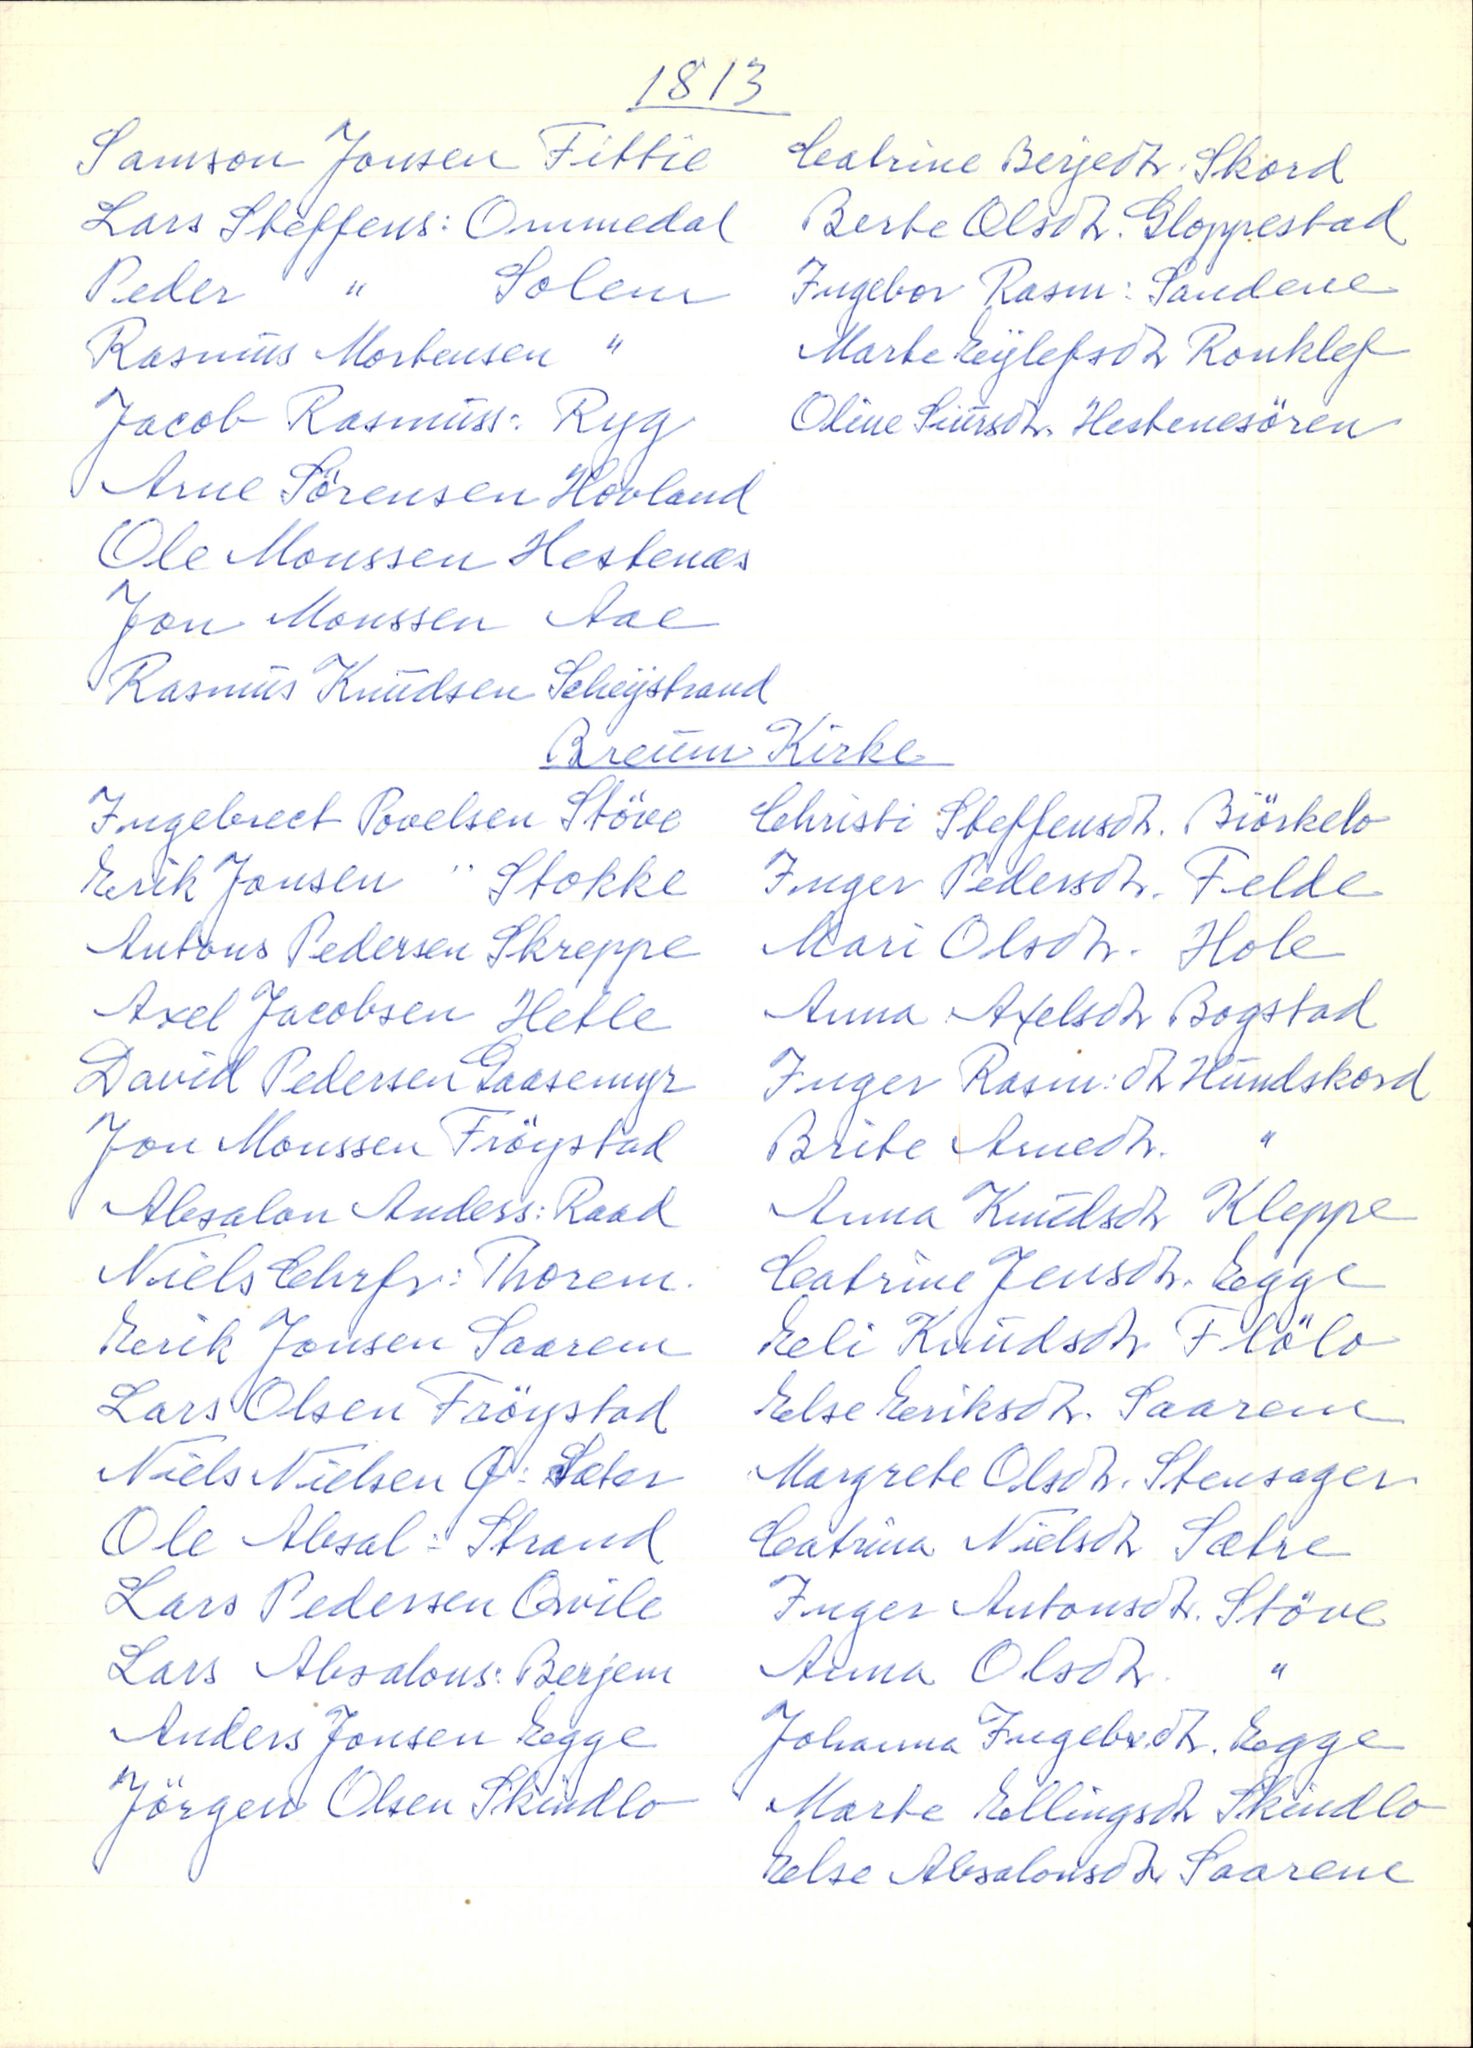 1813
Samson Jonsen Fittie
Lars Steffens: Ommedal
Peder " Solem
Rasmus Mortensen "
Jacob Rasmuss: Ryg
Arne Sörensen Hovland
Ole Monssen Hestenæs
Jon Monssen Aae
Rasmus Knudsen Scheistrand
Catrine Berjedtr. Skord
Berte Olsdtr. Gloppestad
Ingebor Rasm: Sandene
Marte Eÿlefsdtr Ronklef
Oline Siursdtr. Hestenesören
Breum Kirke
Ingebrect Povelsen Stöve
Erik Jonsen " Stokke
Antons Pedersen Skreppe
Axel Jacobsen Hetle
David Pedersen Gaasemyr
Jon Monssen Fröystad
Absalon Anders: Raad
Niels Chrf: Thorem.
Eerik Jonsen Saarem
Lars Olsen Fröystad
Niels Nielsen G: Sæter
Ole Absal: Strand
Lars Pedersen Qvile
Lars Absalons: Berjem
Anders Jonsen Egge
Jörgen Olsen Skindlo
Christi Steffensdtr. Biörkelo
Inger Pedersdtr. Felde
Mari Olsdtr. Hole
Anna Axelsdtr Bogstad
Inger Rasm:dtr Hundskord
Brite Arnedtr. "
Anna Knudsdtr Kleppe
Catrine Jensdtr. Egge
Eli Knudsdtr Flölo
Else Eriksdtr. Saarem
Margrete Olsdtr. Stensager
Catrina Nielsdtr Sætre
Inger Antonsdtr. Stöve
Anna Olsdtr. "
Johanna Ingebr.dtr. Egge
Marte Ellingsdtr Skindlo
Else Absalonsdtr Saarem